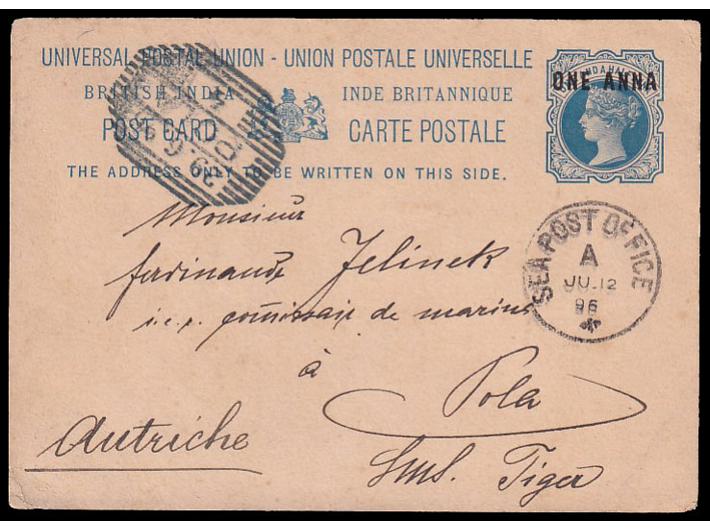 UNIVERSAL POSTAL UNION - UNION POSTALE UNIVERSELLE
BRITISH INDIA INDE BRITANNIQUE
POST CARD CARTE POSTALE
THE ADDRESS ONLY TO BE WRITTEN ON THIS SIDE.
ONE ANNA
SEA POST OFFICE
A
JU.12
96
Monsieur
Ferdinand Jelinek
de marine
à
Pola
Autriche
SMS. Tiger